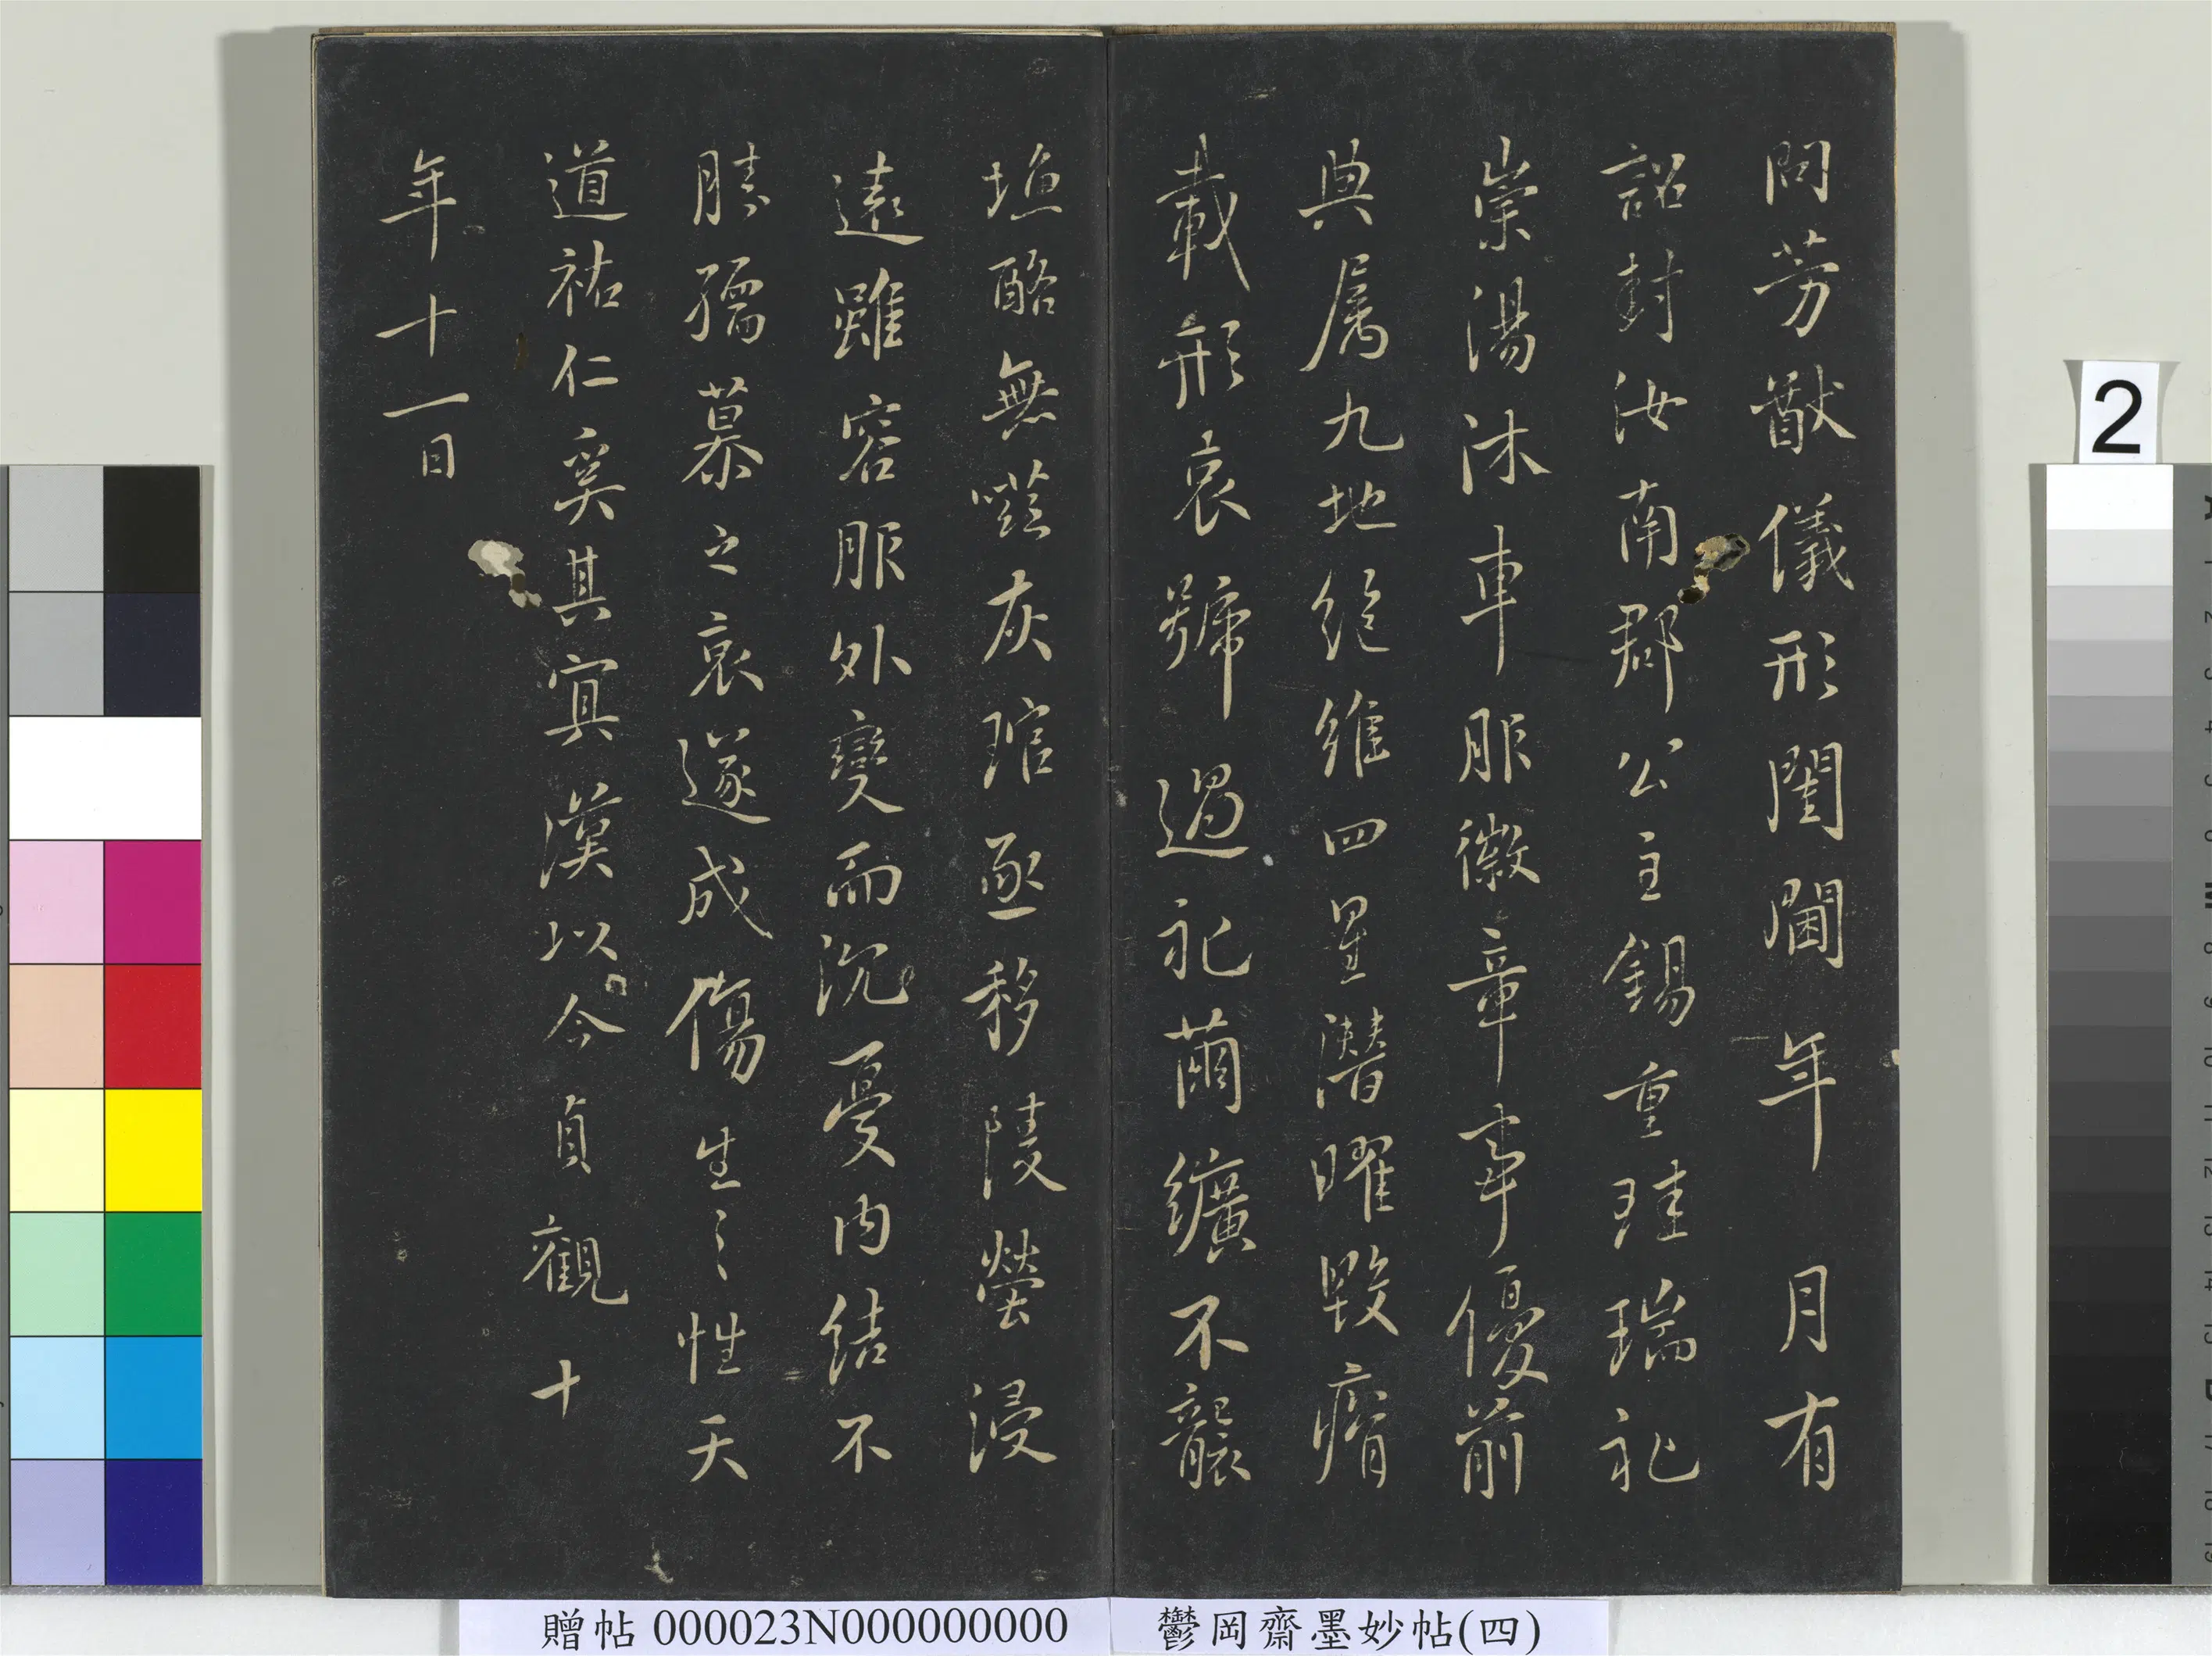 問芳猷儀形閨閫年月有
詔封汝南郡公主錫重珪瑞礼
崇湯沐車服徽章事優前
典属九地絶維四星潛曜毀瘠
載形哀號過礼繭纊不襲
塩酪無嗞灰琯亟移陵塋浸
遠雖容服外變而沉憂内結不
勝孺慕之哀遂成傷生之性天
道祐仁奚其冥漠以今貞觀十
年十一日
贈帖 000023N000000000
鬱岡齋墨妙帖(四)
2